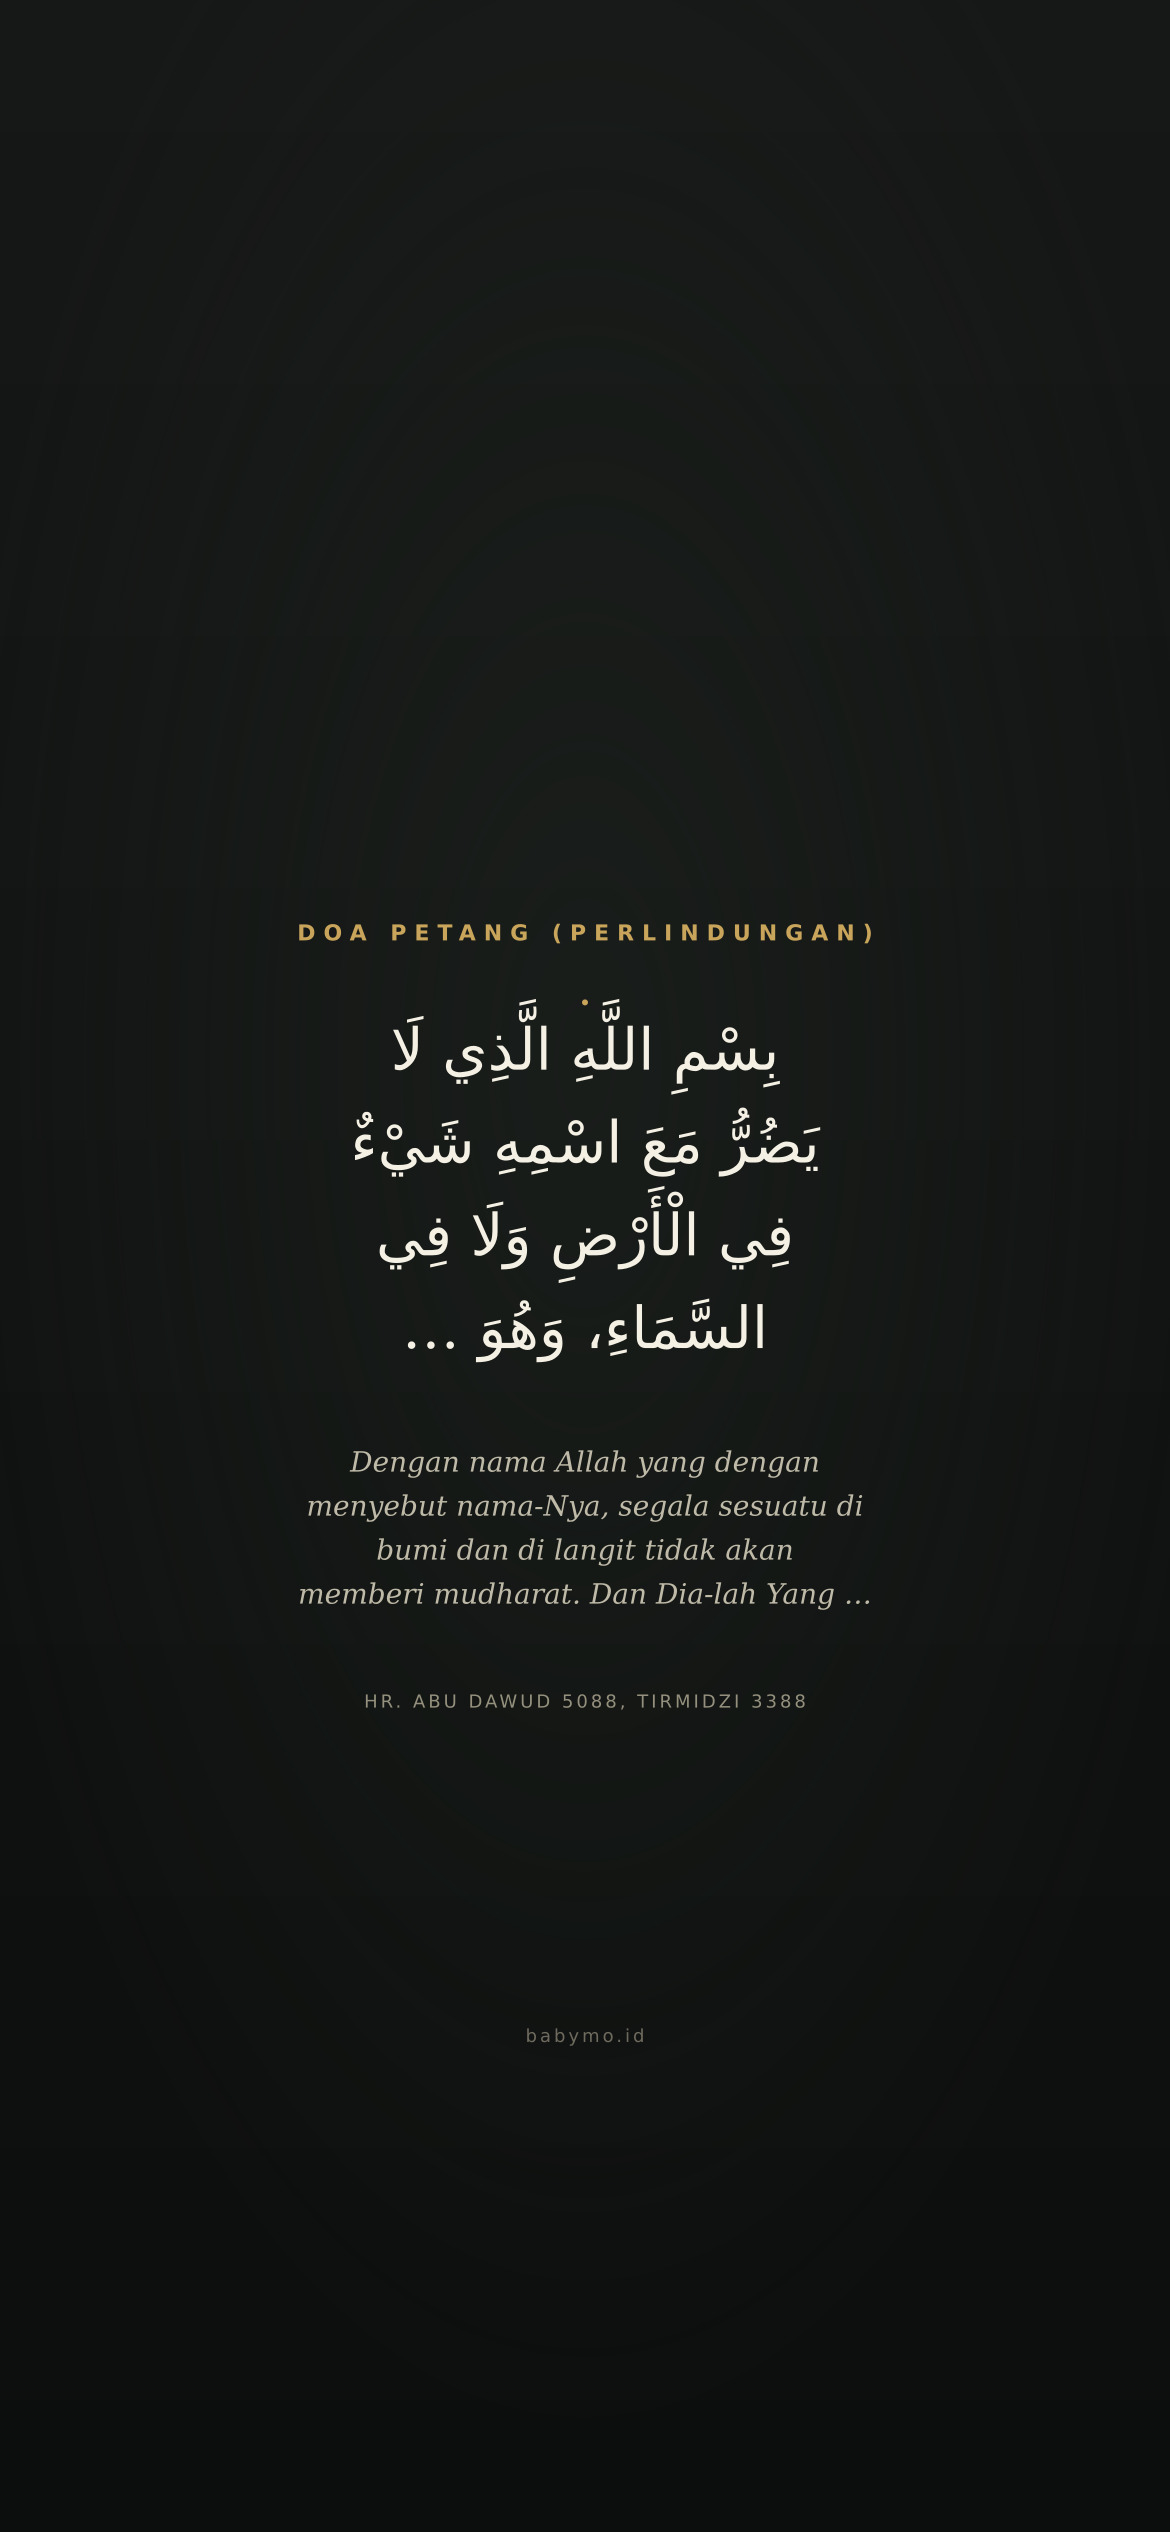 DOA PETANG (PERLINDUNGAN)
بِسْمِ اللَّهِ الَّذِي لَا
يَضُرُّ مَعَ اسْمِهِ شَيْءٌ
فِي الْأَرْضِ وَلَا فِي
السَّمَاءِ، وَهُوَ ...
Dengan nama Allah yang dengan
menyebut nama-Nya, segala sesuatu di
bumi dan di langit tidak akan
memberi mudharat. Dan Dia-lah Yang ...
HR. ABU DAWUD 5088, TIRMIDZI 3388
babymo.id